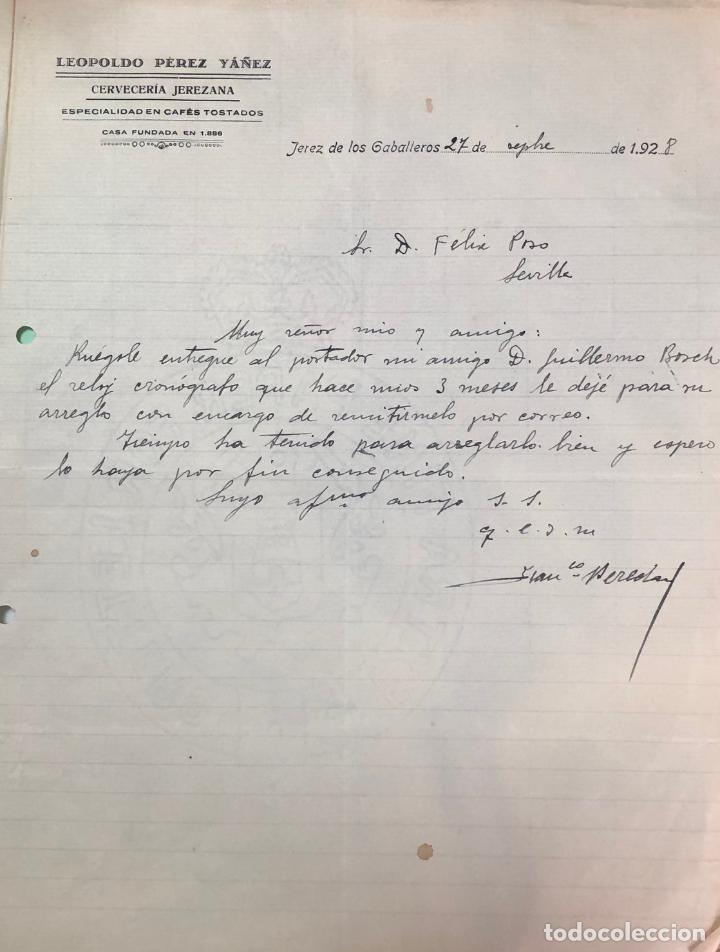 LEOPOLDO PÉREZ YÁÑEZ
CERVECERÍA JEREZANA
ESPECIALIDAD EN CAFÉS TOSTADOS
CASA FUNDADA EN 1.886
Jerez de los Caballeros 27 de sepbre de 1.928
Sr. D. Félix Poso
Sevilla
Muy señor mio y amigo:
Ruégole entregue al portador mi amigo D. Guillermo Bosch
el reloj cronógrafo que hace mios 3 meses le dejé para su
arreglo con encargo de remitirmelo por correo.
Tiempo ha tenido para arreglarlo bien y espero
lo haya por fin conseguido.
Suyo afmo amigo S. S.
q. e. s. m
Franco Pereda
todocoleccion